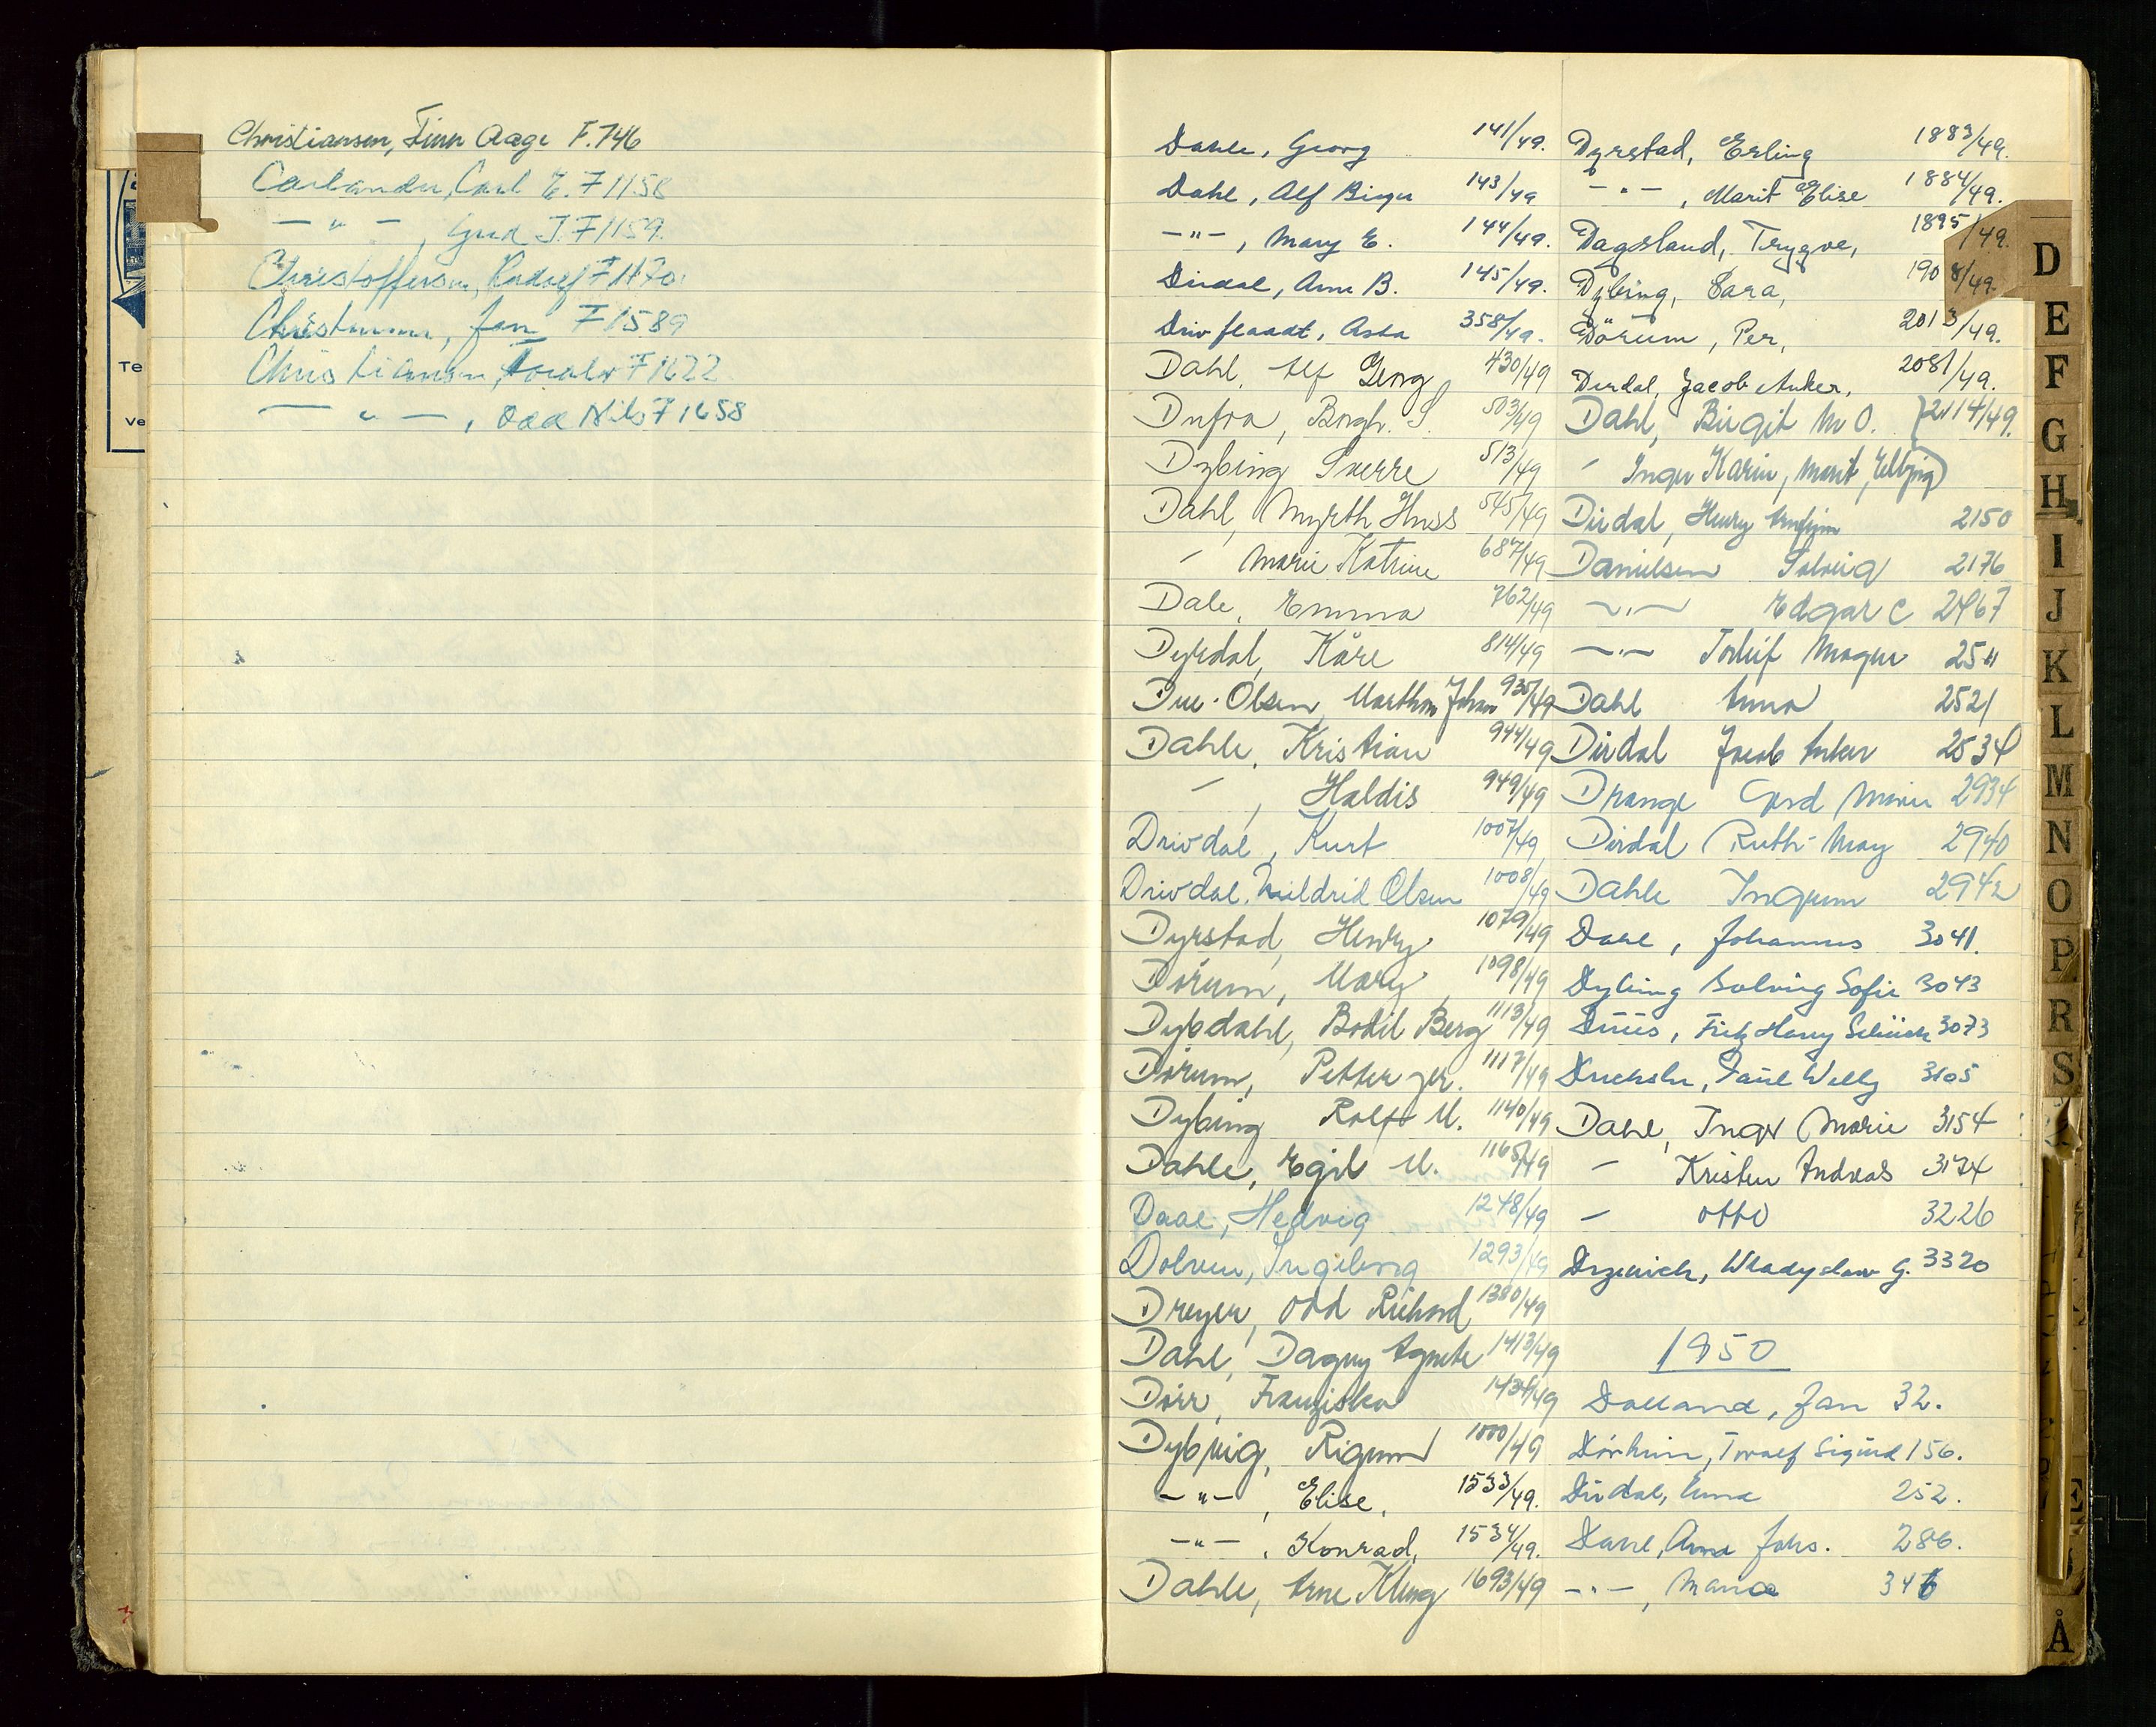 Christiansen, Finn Aage F. 746
Carlander, Carl E. F 1158
— " —, Gud J. F 1159.
Christoffersen, Rudolf F 1170.
Christensen, Jan F 1589
Christiansen, F 1622
— " —, Odd Nils F 1658
Te
ve
Dahle, Georg 141/49.
Dahl, Alf Birger 143/49
— " —, Mary E. 144/49.
Dirdal, Ann B. 145/49.
Drivflaadt, Asta 358/49.
Dahl, Alf Georg 430/49
Dufva, Borgh. S. 503/49
Dybing Sverre 513/49
Dahl, Myrth Huss 545/49
— Marie Katrine 687/49
Dale, Emma 762/49
Dyrdal, Kåre 814/49
Due-Olsen, Marthon Johan 935/49
Dahle, Kristian 944/49
—, Haldis 949/49
Drivdal, Kurt 1007/49
Drivdal, Mildrid Olsen 1008/49
Dyrstad, Henry 1079/49
Dørum, Mary 1098/49
Dybdahl, Bodil Berg 1113/49
Dørum, Petter jr. 1117/49
Dybing Rolf M. 1140/49
Dahle, Egil M. 1165/49
Daae, Hedvig 1248/49
Dolven, Ingeborg 1293/49
Dreyer, Odd Richard 1380/49
Dahl, Dagny Agnete 1413/49
Dörr, Franziska 1434/49
Dybvig, Rigmor 1000/49
— " —, Elise, 1533/49.
— " —, Konrad, 1534/49.
Dahle, Arne Kleng 1693/49
Dyrstad, Erling 1883/49.
— " —, Marit Elise 1884/49.
Dagsland, Trygve, 1895/49.
Dybing, Sara, 1908/49.
Dörum, Per, 2013/49.
Dirdal, Jacob Anker, 2081/49.
Dahl, Birgit M O. } 2114/49.
— Inger Karin, Marit, Elbjørg)
Dirdal, Henry Arnfinn 2150
Danielsen Solveig 2176
— " — Edgar C 2467
— " — Torleif Magne 2511
Dahl Anna 2521
Dirdal Jacob Anker 2534
Drange Gerd Marie 2934
Dirdal Ruth May 2940
Dahle Ingunn 2942
Dahl, Johannes 3041.
Dybing Solveig Sofie 3043
Düüs, Fritz Harry Schüick 3073
Drucksler, Paul Willy 3105
Dahl, Inger Marie 3154
— Kristen Andreas 3174
— Otto 3226
Drzewich, Wladyslaw G. 3320
1950
Dalland, Jan 32.
Dørheim, Toralf Sigurd 156.
Dirdal, Anna 252.
Dahl, Anna Johs. 286.
— " —, Maria 346
D
E
F
G
H
I
J
K
L
M
N
O
P
R
S
E
Å